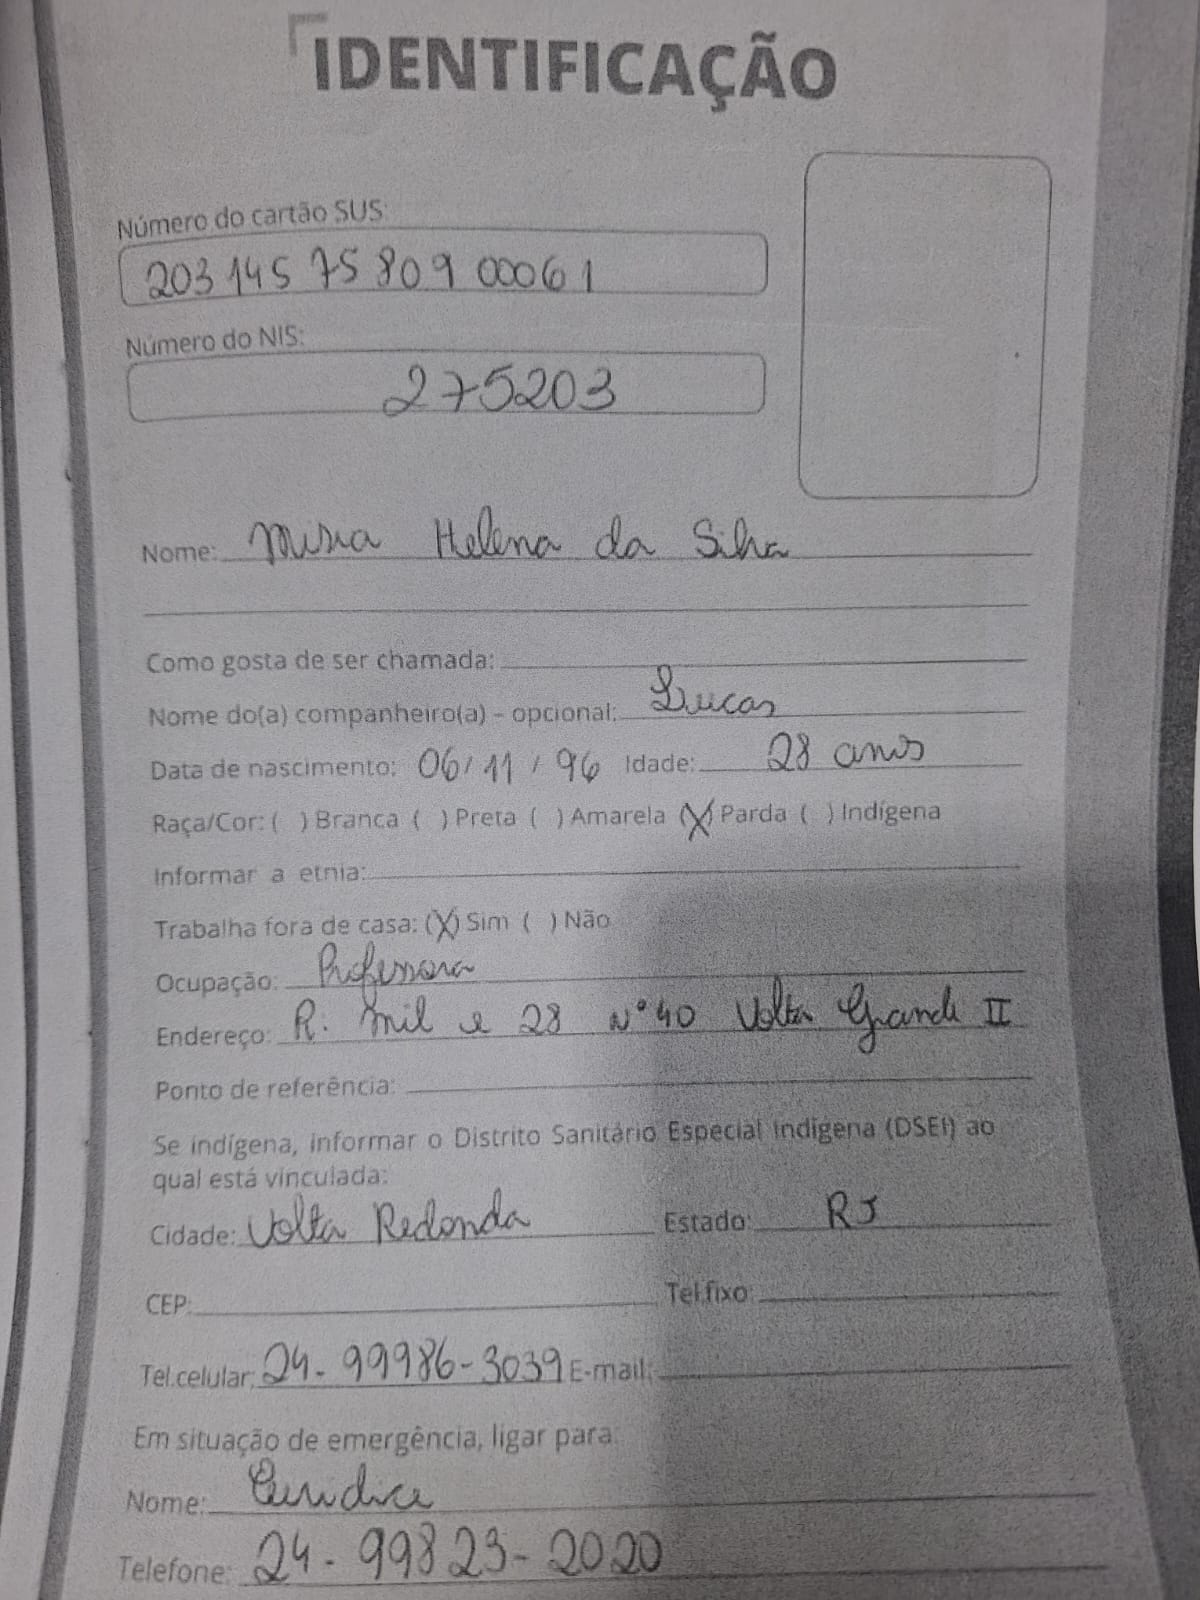 IDENTIFICAÇÃO
Número do cartão SUS:
203 145 75 809 00061
Número do NIS:
275203
Nome: Helena da Silva
Como gosta de ser chamada:
Nome do(a) companheiro(a) – opcional: Lucas
Data de nascimento: 06/11/96 Idade: 28 anos
Raça/Cor: ( ) Branca ( ) Preta ( ) Amarela (X) Parda ( ) Indígena
Informar a etnia:
Trabalha fora de casa: (X) Sim ( ) Não
Ocupação: Professora
Endereço: R. Mil e 28 Nº 40 Volta Grande II
Ponto de referência:
Se indígena, informar o Distrito Sanitário Especial Indígena (DSEI) ao
qual está vinculada:
Cidade: Volta Redonda Estado: RJ
CEP: Tel.fixo:
Tel.celular: 24-99986-3039 E-mail:
Em situação de emergência, ligar para:
Nome:
Telefone: 24-99823-2020